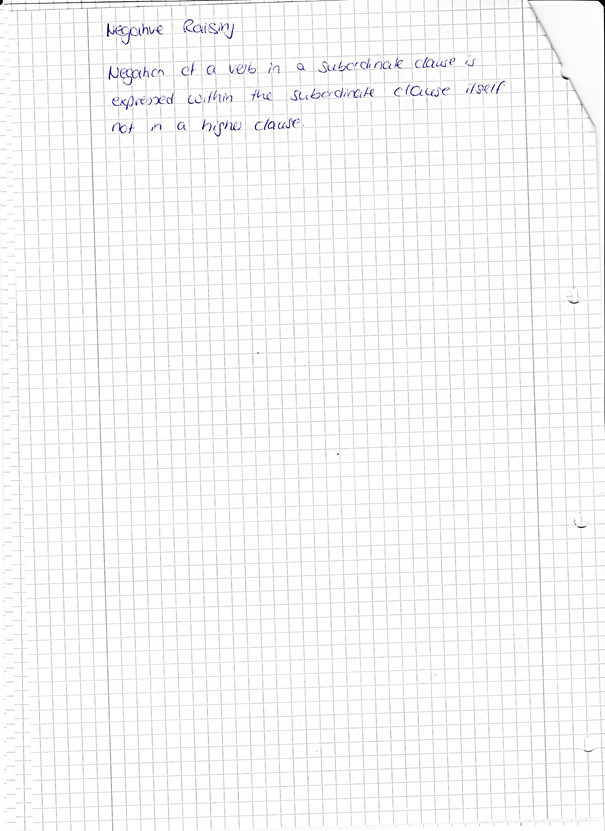 Negative Raising
Negation of a verb in a subordinate clause is
expressed within the subordinate clause itself
not in a higher clause.